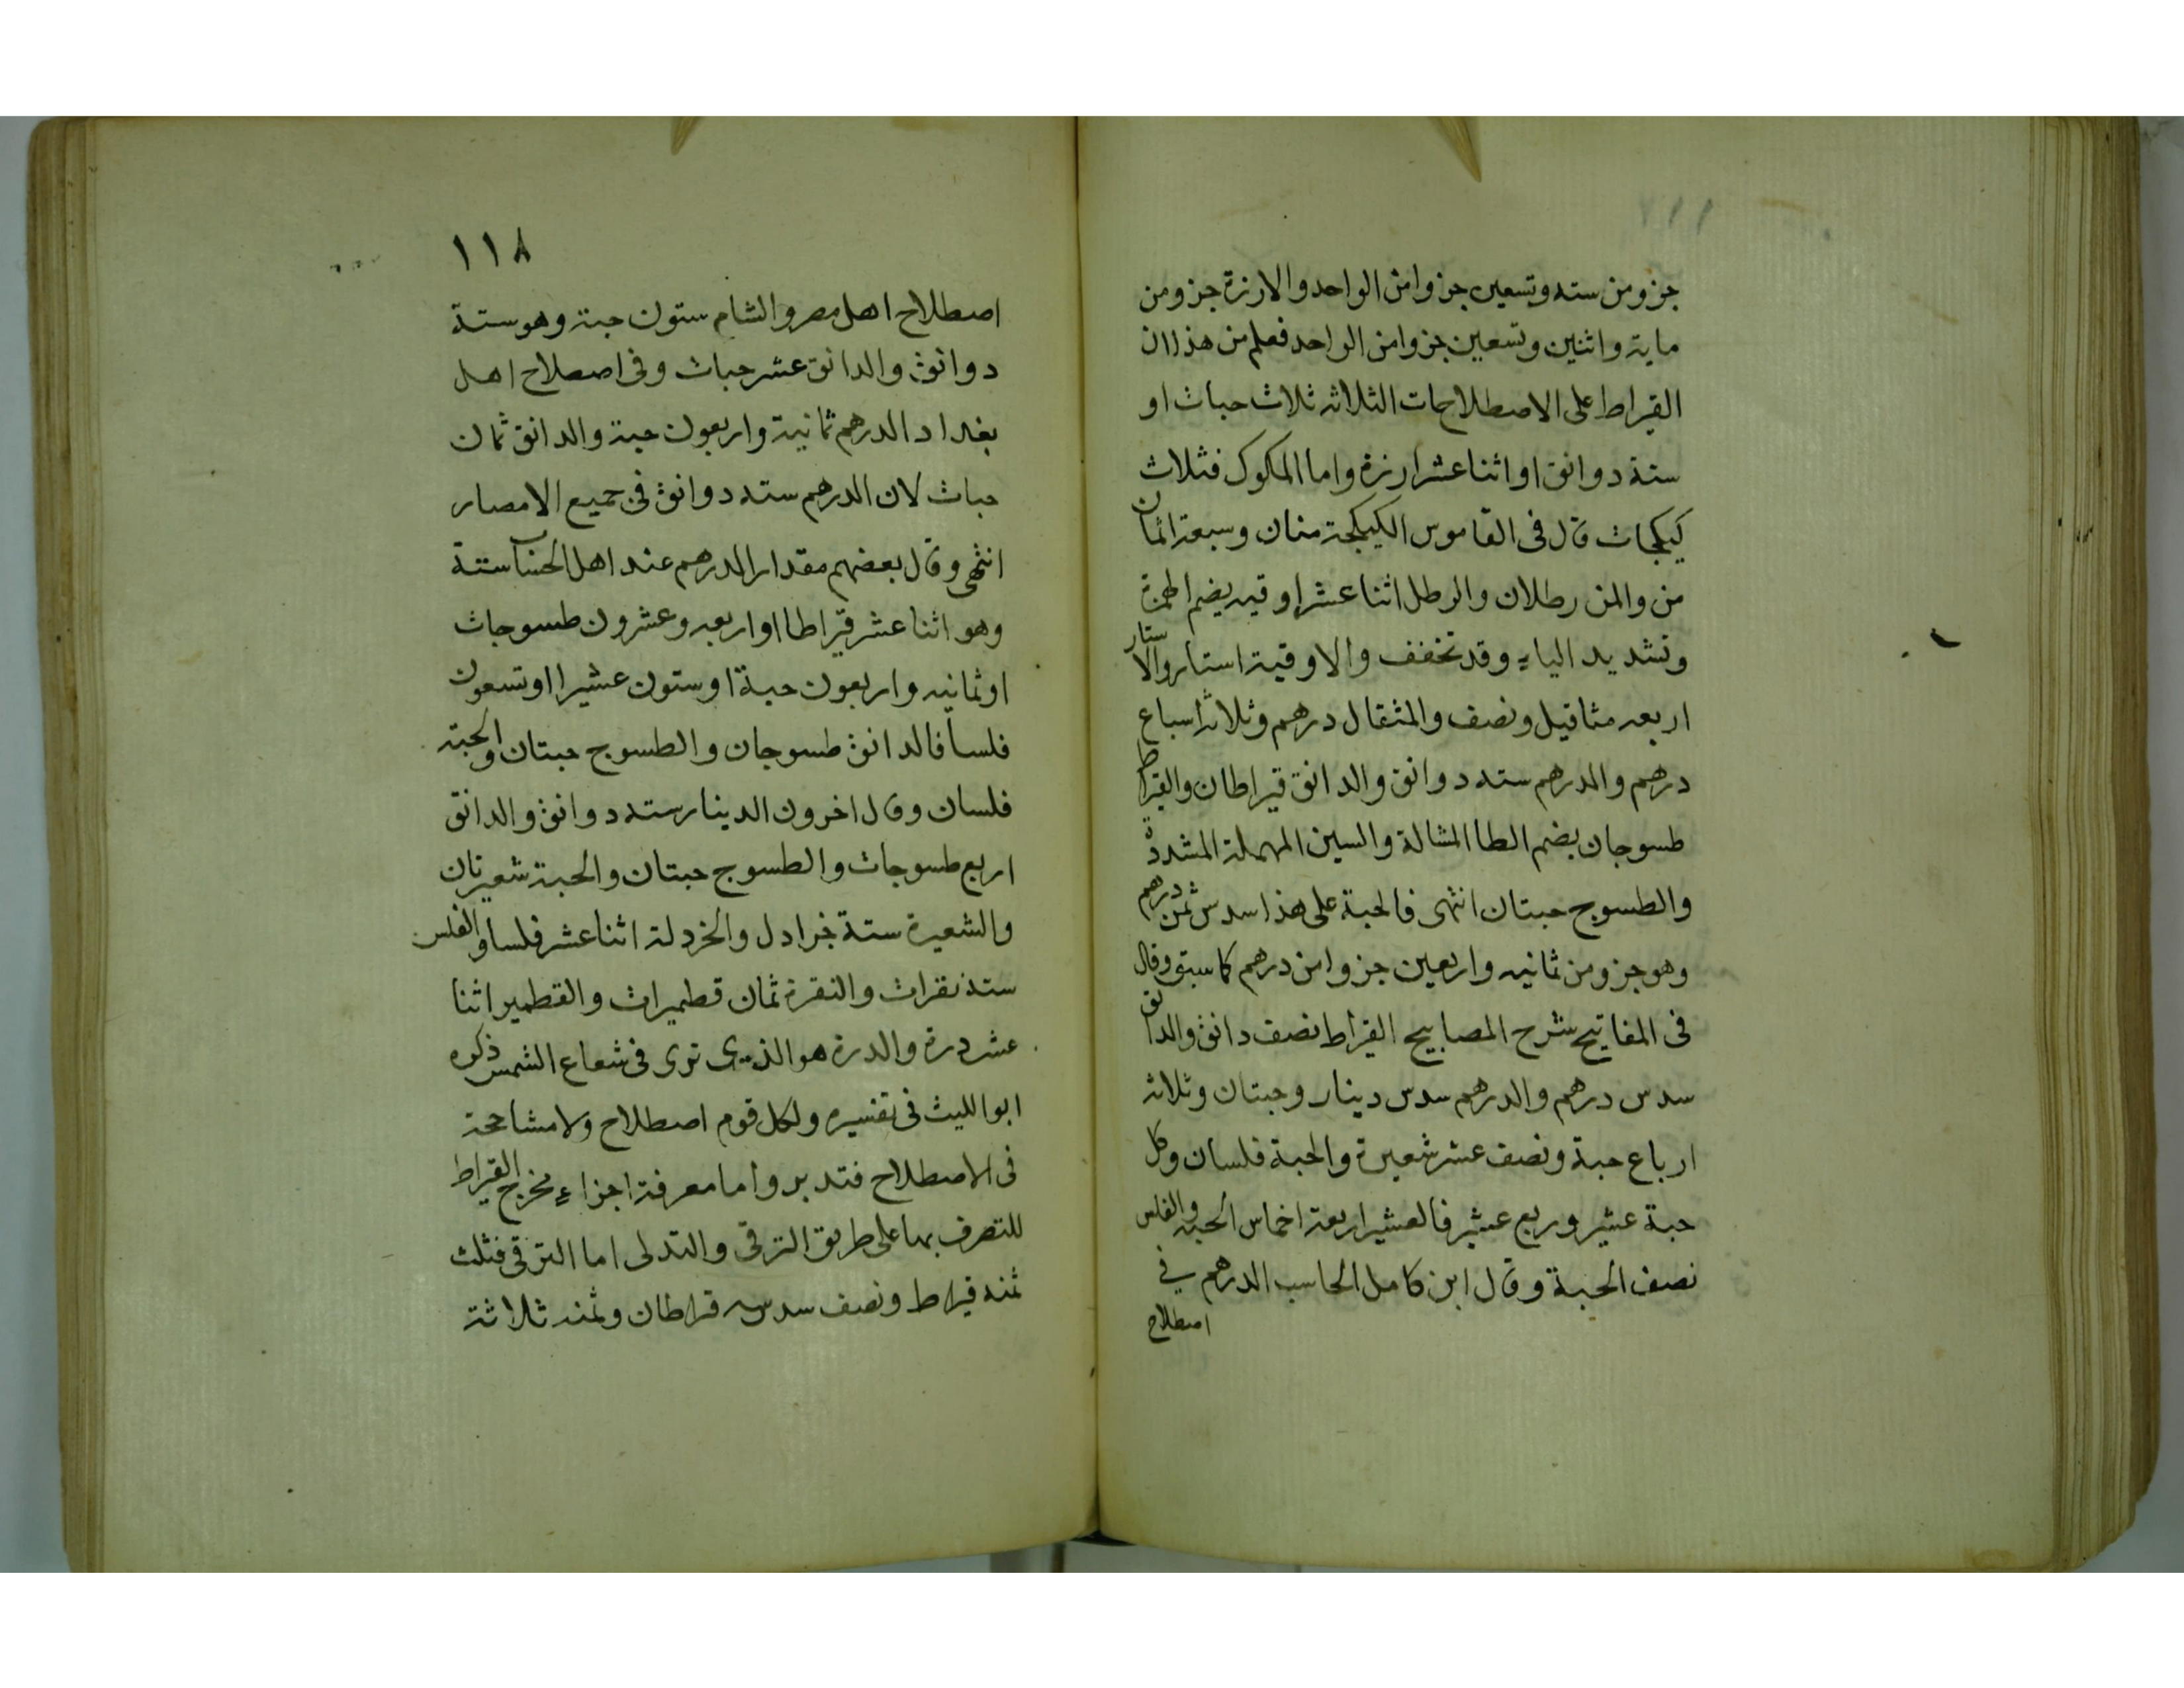 جزو من سته وتسعين جزوا من الواحد والارزة جزو من
ماية واثنين وتسعين جزوا من الواحد فعلم من هذا ان
القيراط على الاصطلاحات الثلاثه ثلاث حبات او
ستة دوانق او اثنا عشر ارزة واما المكوك فثلاث
كيلجات قال فى القاموس الكيلجة منان وسبعة اثمان
من والمن رطلان والرطل اثنا عشر اوقيه بضم الهمزة
وتشديد الياء وقد تخفف والاوقية استار والاستار
اربعه مثاقيل ونصف والمثقال درهم وثلاثة اسباع
درهم والدرهم سته دوانق والدانق قيراطان والقيراط
طسوجان بضم الطا المشالة والسين المهملة المشددة
والطسوج حبتان انتهى فالحبة على هذا سدس ثمن درهم
وهو جزو من ثمانيه واربعين جزوا من درهم كما سبق وقال
فى المفاتيح شرح المصابيح القيراط نصف دانق والدانق
سدس درهم والدرهم سدس دينار وحبتان وثلاثة
ارباع حبة ونصف عشر شعيرة والحبة فلسان وكل
حبة عشير وربع عشير فالعشير اربعة اخماس الحبه والفلس
نصف الحبة وقال ابن كامل الحاسب الدرهم في
اصطلاح
١١٨
اصطلاح اهل مصر والشام ستون حبة وهو ستة
دوانق والدانق عشر حبات وفى اصطلاح اهل
بغداد الدرهم ثمانية واربعون حبة والدانق ثمان
حبات لان الدرهم سته دوانق فى جميع الامصار
انتهى وقال بعضهم مقدار الدرهم عند اهل الحساب ستة
وهو اثنا عشر قيراطا او اربعه وعشرون طسوجات
او ثمانيه واربعون حبة او ستون عشيرا او تسعون
فلسا فالدانق طسوجان والطسوج حبتان والحبة
فلسان وقال اخرون الدينار سته دوانق والدانق
اربع طسوجات والطسوج حبتان والحبة شعيرتان
والشعيرة ستة خرادل والخردلة اثنا عشر فلسا والفلس
ستة نقرات والنقرة ثمان قطميرات والقطمير اثنا
عشر درة والدرة هو الذى ترى فى شعاع الشمس ذكره
ابو الليث فى تفسيره ولكل قوم اصطلاح ولا مشاححة
فى الاصطلاح فتدبر واما معرفة اجزاء مخرج القيراط
للتصرف بها على طريق الترقى والتدلى اما الترقى فثلث
ثمنه قيراط ونصف سدسه قراطان وثمنه ثلاثة